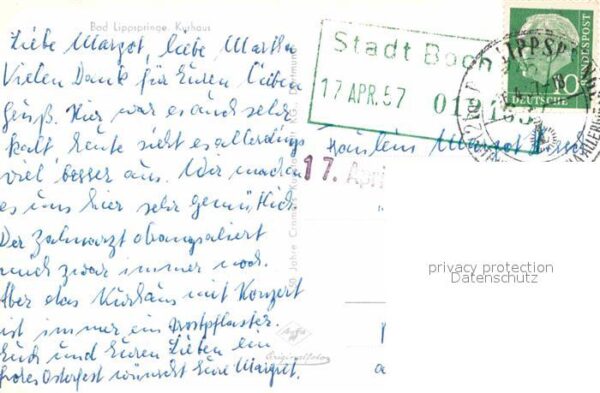 Bad Lippspringe. Kurhaus
Liebe Margot, liebe Martha
Vielen Dank für Euren lieben
Gruß. Hier war es auch sehr
kalt heute sieht es allerdings
viel besser aus. Wir machen
es uns hier sehr gemütlich.
Der Zahnarzt
mich zwar immer noch.
Aber das Kurhaus mit Konzert
ist immer ein Trostpflaster.
Euch und Euren Lieben ein
frohes Osterfest wünscht Eure Margret.
50 Jahre Cramers
Agfa
Originalfoto
Stadt Boch
17 APR. 57
17. Apri
Fräulein Margot
LIPPSP
DEUTSCHE
BUNDESPOST
10
privacy protection
Datenschutz